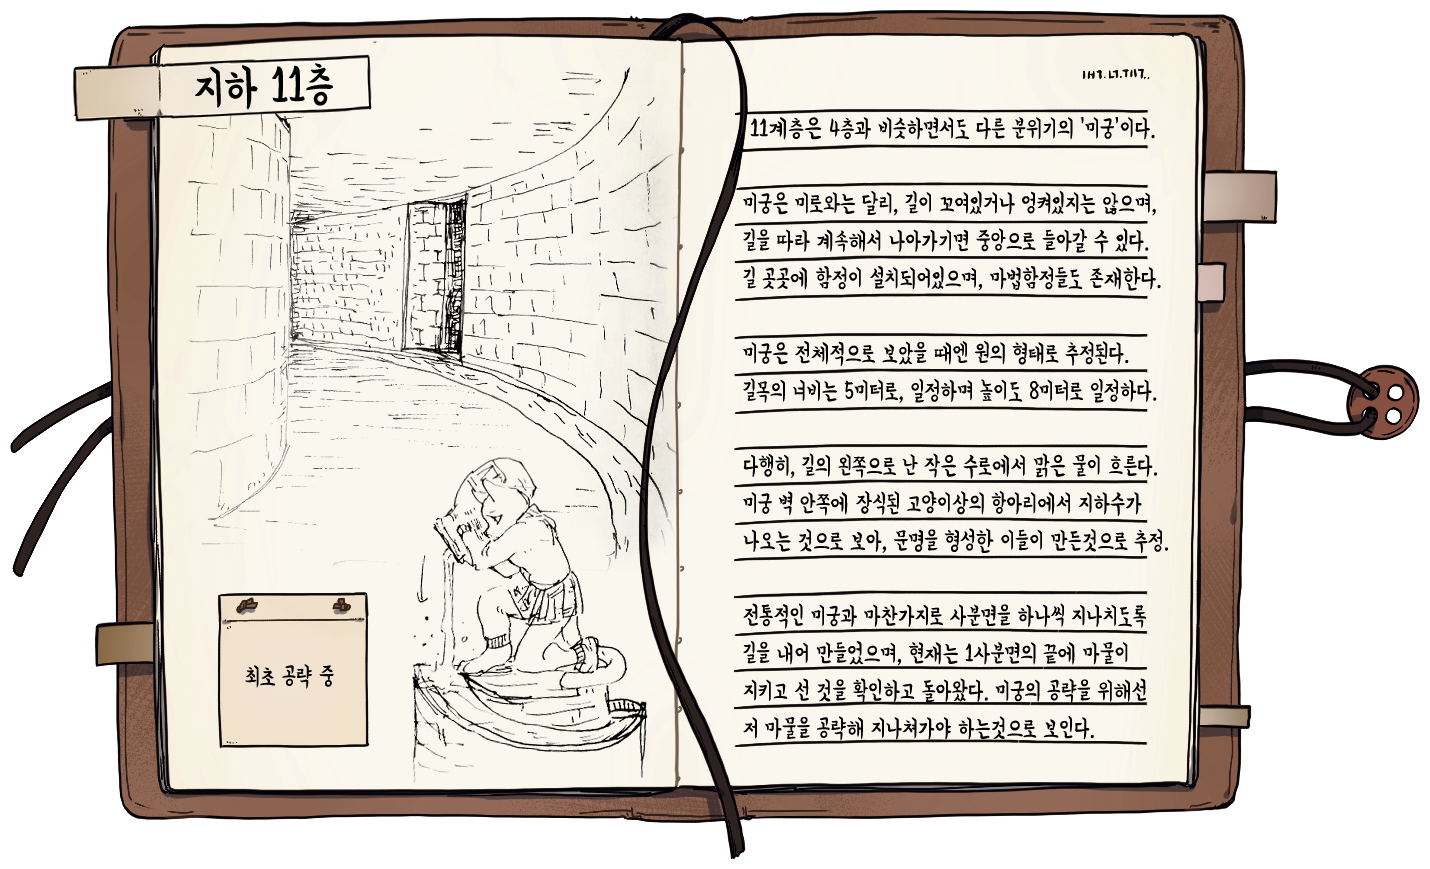 지하 11층
최초 공략 중
11계층은 4층과 비슷하면서도 다른 분위기의 '미궁'이다.
미궁은 미로와는 달리, 길이 꼬여있거나 엉켜있지는 않으며,
길을 따라 계속해서 나아가기면 중앙으로 들아갈 수 있다.
길 곳곳에 함정이 설치되어있으며, 마법함정들도 존재한다.
미궁은 전체적으로 보았을 때엔 원의 형태로 추정된다.
길목의 너비는 5미터로, 일정하며 높이도 8미터로 일정하다.
다행히, 길의 왼쪽으로 난 작은 수로에서 맑은 물이 흐른다.
미궁 벽 안쪽에 장식된 고양이상의 항아리에서 지하수가
나오는 것으로 보아, 문명을 형성한 이들이 만든것으로 추정.
전통적인 미궁과 마찬가지로 사분면을 하나씩 지나치도록
길을 내어 만들었으며, 현재는 1사분면의 끝에 마물이
지키고 선 것을 확인하고 돌아왔다. 미궁의 공략을 위해선
저 마물을 공략해 지나쳐가야 하는것으로 보인다.